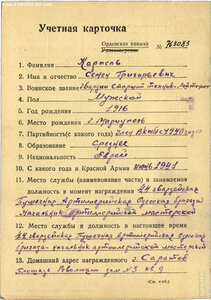 Учетная карточка
Орденская книжка
№ 763083
1. Фамилия Карпель
2. Имя и отчество Семен Григорьевич
3. Воинское звание гвардии Старший Техник-Лейтенант
4. Пол Мужской
5. Год рождения 1916
6. Место рождения г. Мариуполь
7. Партийность (с какого года) член ВКП(б) с 1940 года
8. Образование Среднее
9. Национальность Еврей
10. С какого года в Красной Армии июнь 1941
11. Место службы (наименование части) и занимаемая
должность в момент награждения гвардейская
Пушечная Артиллерийская бригада
Начальник артиллерийской мастерской
12. Место службы и должность в настоящее время
гвардейская Пушечная Артиллерийская
бригада начальник артиллерийской мастерской
13. Домашний адрес награжденного г. Саратов
Площадь Революции дом № 3 кв. 9
(См. н/об.)